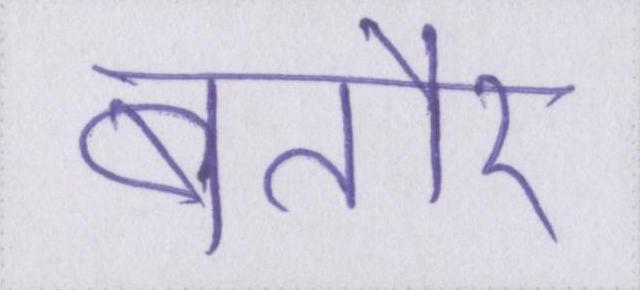 बतौर